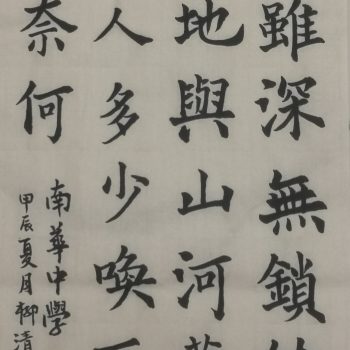 雖深無鎖
地與山河
人多少喚
奈何
南華中學
甲辰夏月柳清